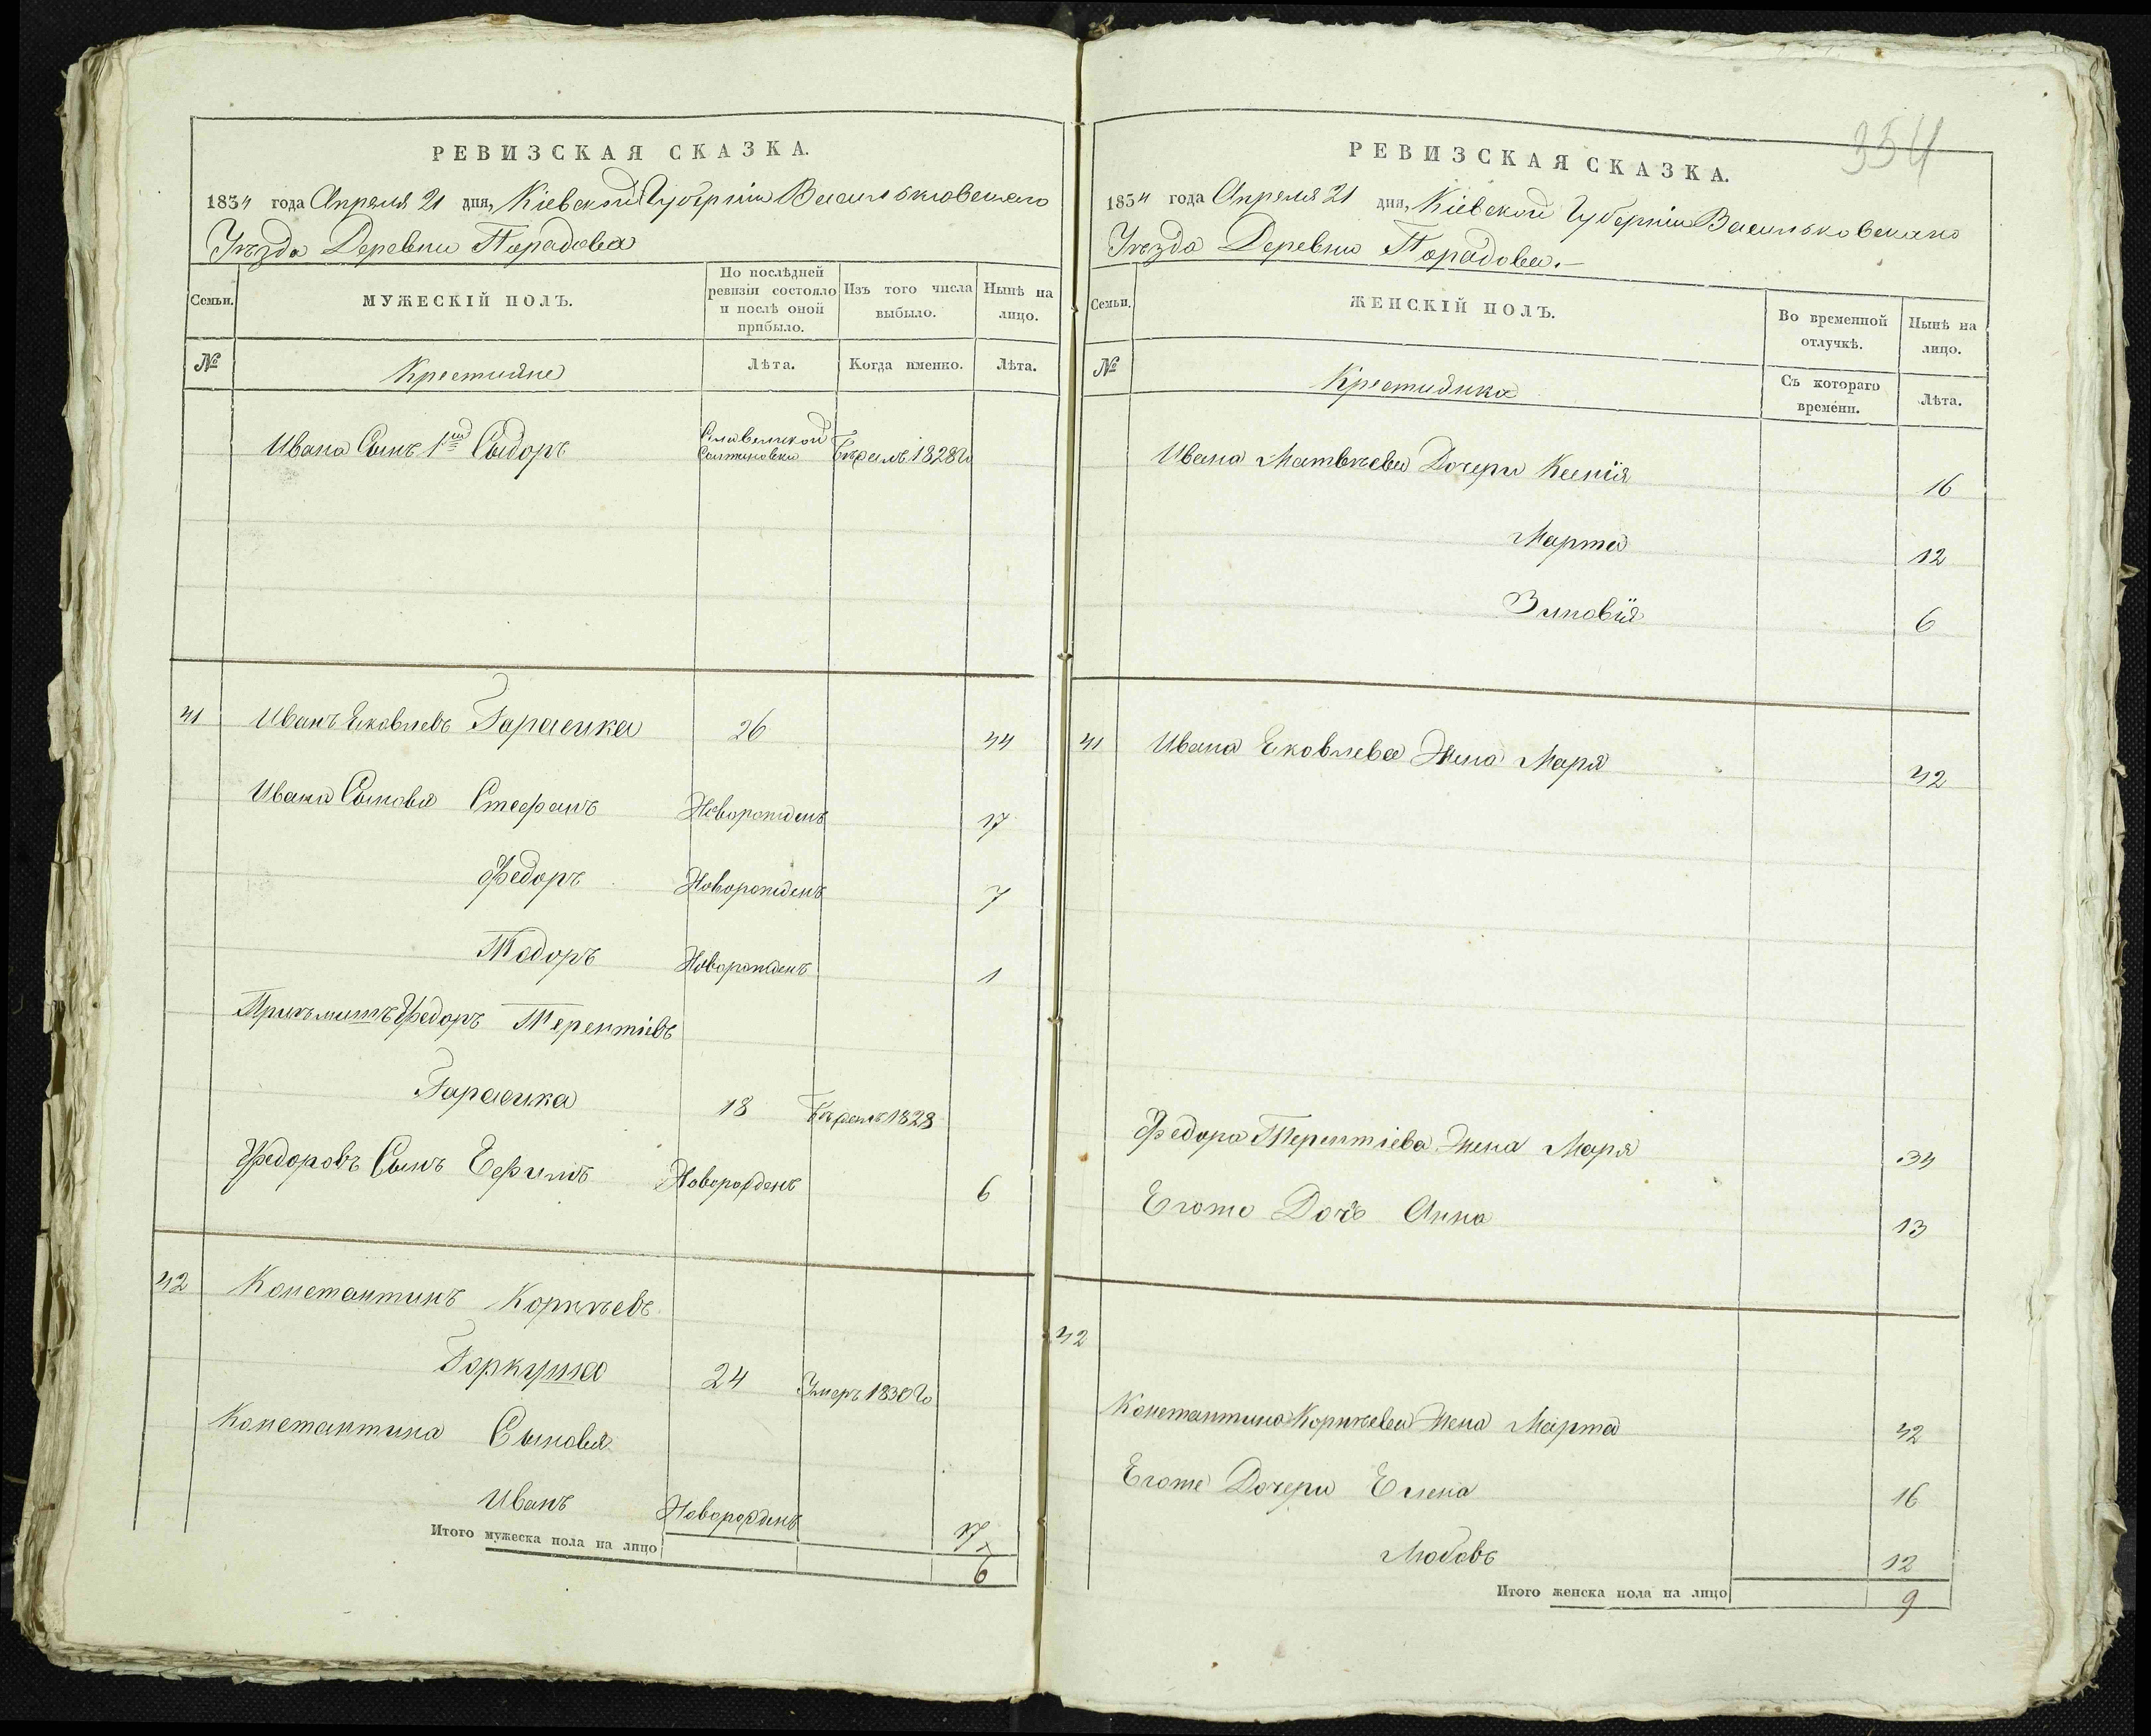 РЕВИЗСКАЯ СКАЗКА.
1834 года Апреля 21 дня, Кіевской Губерніи Васильковскаго
Уѣзда Деревни Порадовки
Семьи.
МУЖЕСКІЙ ПОЛЪ.
По послѣдней ревизіи состояло и послѣ оной прибыло.
Изъ того числа выбыло.
Нынѣ на лицо.
№
Крестияне
Лѣта.
Когда именно.
Лѣта.
Ивана Сынъ 1й Сыдоръ Солтановки Бѣжалъ 1828го
41 Иванъ Яковлевъ Гарасика 26 44
Ивана Сыновя Стефанъ Новорожденъ 17
Федоръ Новорожденъ 7
Тодоръ Новорожденъ 1
Приемышъ Федоръ Терентіевъ
Гарасика 18 Бѣжалъ 1828
Федоровъ Сынъ Ефимъ Новорожденъ 6
42 Константинъ Корнѣевъ
Гаркуша 24 Умеръ 1830го
Константина Сыновя
Иванъ Новорожденъ 17
Итого мужеска пола на лицо 6
354
РЕВИЗСКАЯ СКАЗКА.
1834 года Апреля 21 дня, Кіевской Губерніи Васильковскаго
Уѣзда Деревни Порадовки.
Семьи.
ЖЕНСКІЙ ПОЛЪ.
Во временной отлучкѣ.
Нынѣ на лицо.
№
Крестиянка
Съ котораго времени.
Лѣта.
Ивана Матвѣева Дочери Ксенія 16
Марта 12
Зиновія 6
41 Ивана Яковлева Жена Маря 42
Федора Терентіева Жена Маря 34
Егоже Дочъ Анна 13
42
Константина Корнѣева Жена Марта 42
Егоже Дочери Елена 16
Любовъ 12
Итого женска пола на лицо 9